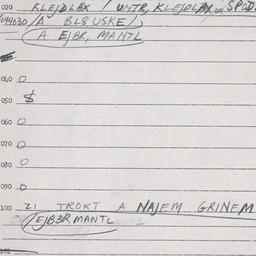 020 KLEJDLAX / UNTR, KLEJDLAX un SPOD.
04430 /A BL8USKE/
/A EJBR, MANTL
040 O
050 $
060 O
070 O
080 O
090 O
100 21 TROKT A NAJEM GRINEM
/EJB3R MANTL